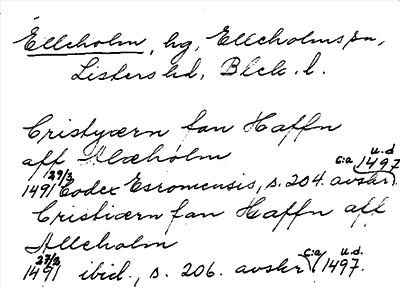 Ellcholm, hg, Ellcholms sn,
Listers hd, Blek. l.
Cristyærn fan Haffn
aff Alæholm
29/3 1491 Codex Esromensis, s. 204. avskr. c:a 1497 u.d
Cristiærn fan Haffn aff
Allcholm
27/2 1491 ibid., s. 206. avskr. (c:a 1497. u.d.